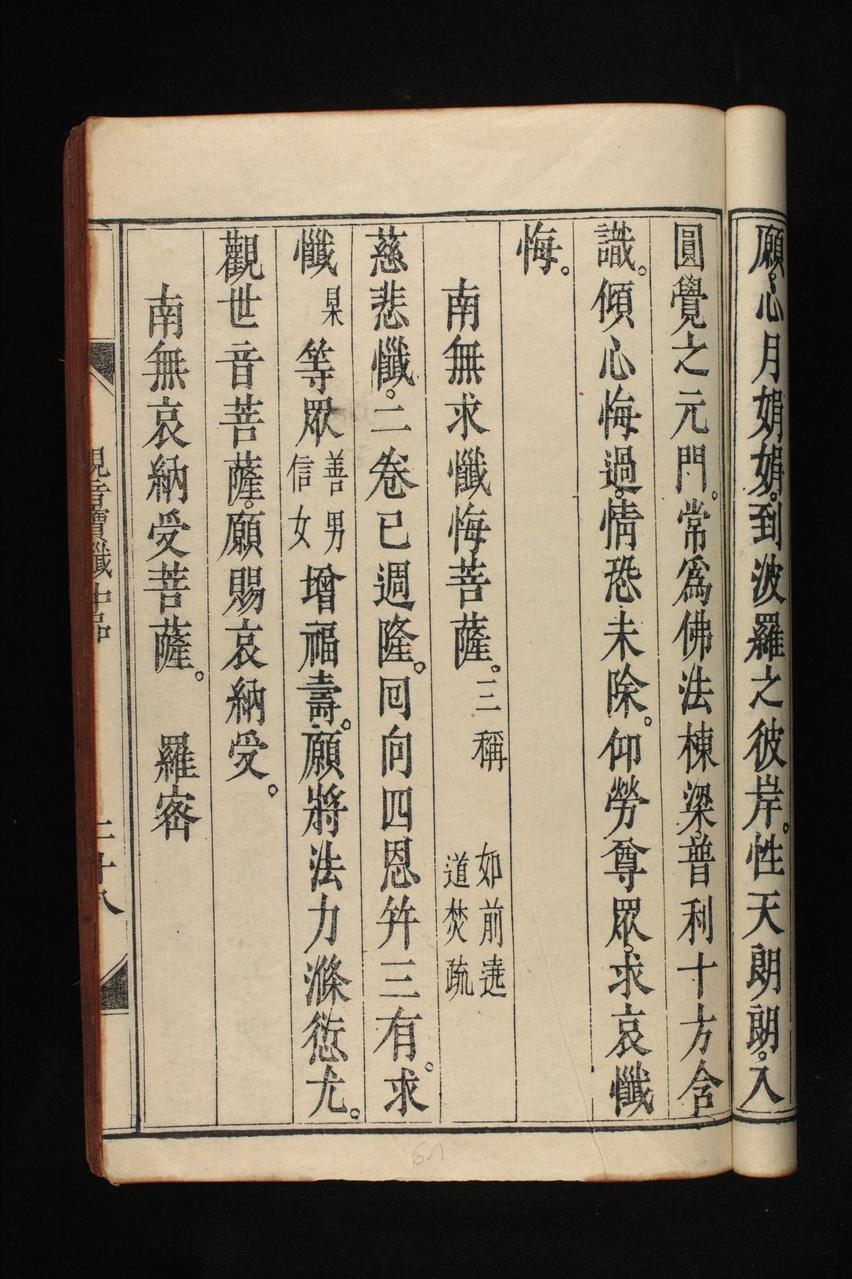 願心月娟娟。到波羅之彼岸。性天朗朗。入
圓覺之元門。常爲佛法棟梁。普利十方含
識。傾心悔過。情恐未除。仰勞尊眾。求哀懺
悔。
南無求懺悔菩薩。三稱 如前遶道焚疏
慈悲懺。二卷已週隆。回向四恩幷三有。求
懺某等眾善男信女增福壽。願將法力滌愆尤。
觀世音菩薩。願賜哀納受。
南無哀納受菩薩。 羅密
觀音寶懺中 二十八
61